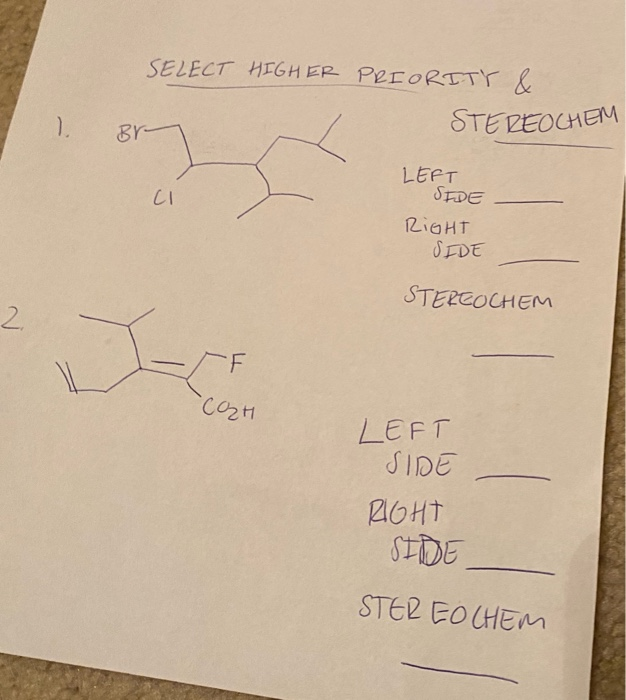 SELECT HIGHER PRIORITY &
STEREOCHEM
1.
Br
Cl
LEFT
SIDE
RIGHT
SIDE
STEREOCHEM
2.
F
CO2H
LEFT
SIDE
RIGHT
SIDE
STEREOCHEM